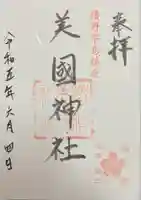 奉拝
美國神社
令和五年六月四日